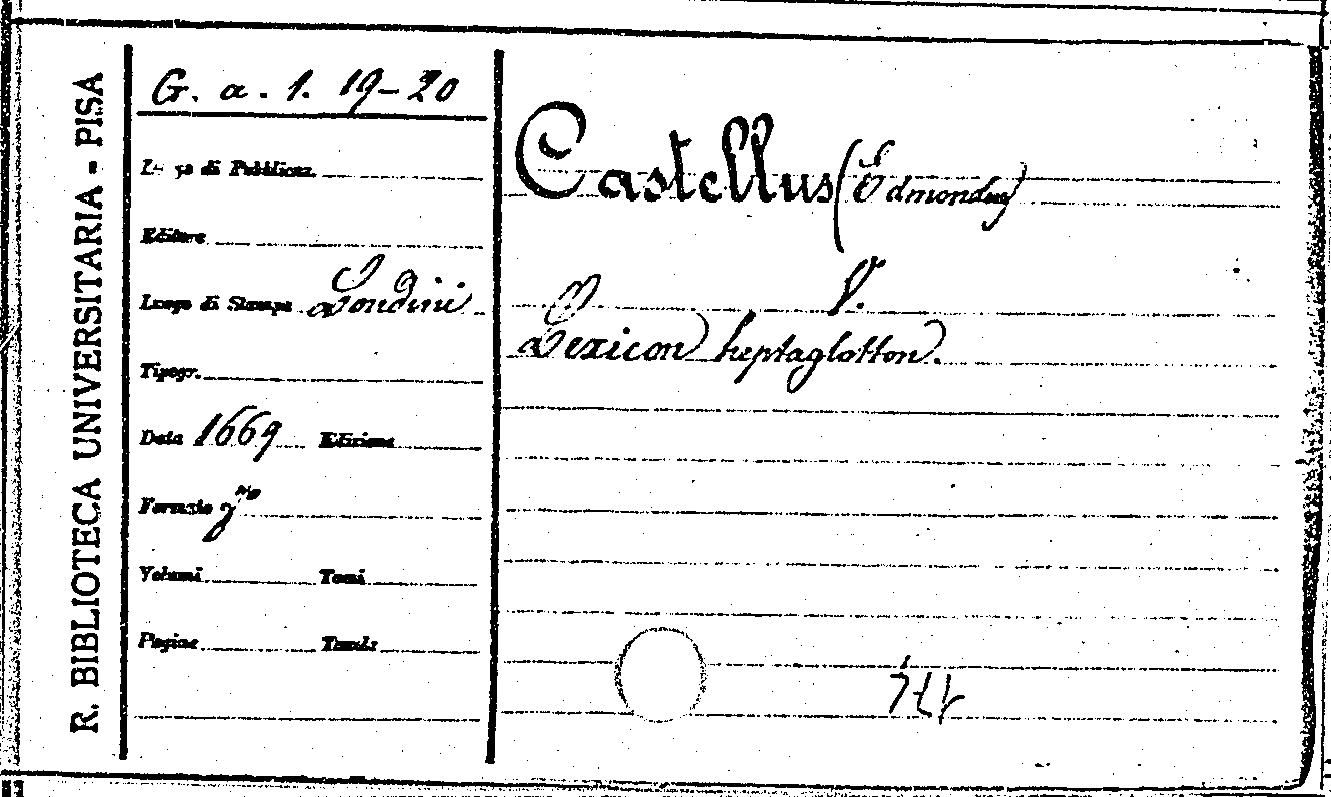 R. BIBLIOTECA UNIVERSITARIA - PISA
G. a. 1. 19-20
Luogo di Pubblicaz.
Editore
Luogo di Stampa Londini
Tipogr.
Data 1669 Edizione
Formato
Volumi Tomi
Pagine Tavole
Castellus (Edmondus)
V.
Lexicon heptaglotton.